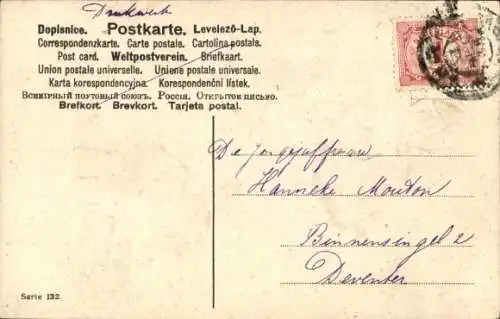 Drukwerk
Dopisnice. Postkarte. Levelező-Lap.
Correspondenzkarte. Carte postale. Cartolina postala.
Post card. Weltpostverein. Briefkaart.
Union postale universelle. Unione postale universale.
Karta korespondencyjna. Korespondenční lístek.
Всемірный почтовый союзъ. Россія. Открытое письмо.
Brefkort. Brevkort. Tarjeta postal.
De Jongejuffrouw
Hanneke Mouton
Binnensingel 2
Deventer
Serie 132.